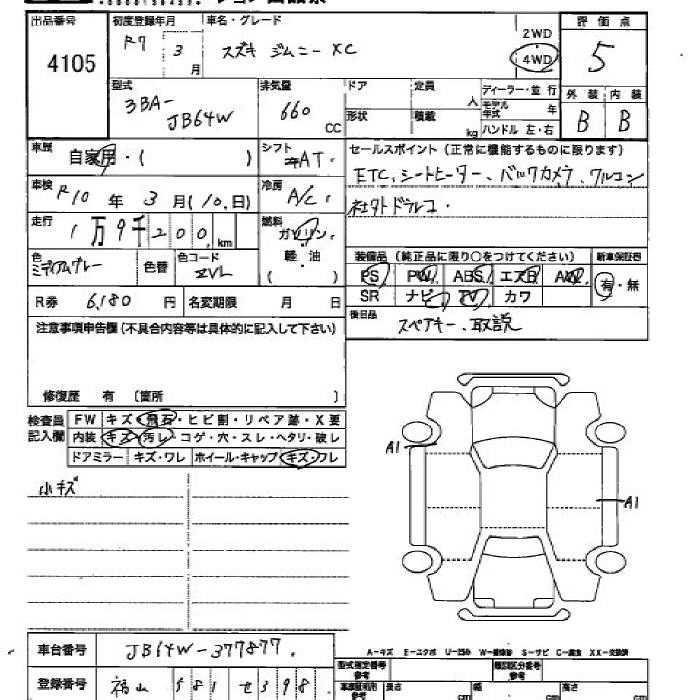 出品番号
4105
初度登録年月
R7 3 月
車名・グレード
スズキ ジムニー XC
2WD
4WD
評価点
5
型式
3BA-
JB64W
排気量
660 CC
ドア
定員
人
形状
積載
kg
ディーラー・並行
モデル年式 年
ハンドル 左・右
外装 内装
B B
車歴
自家用・( )
シフト
AT
セールスポイント (正常に機能するものに限ります)
ETC、シートヒーター、バックカメラ、クルコン
社外ドラレコ.
車検
R10 年 3 月 (10.日)
冷房
A/C
走行
1万9千200 km
燃料
ガソリン
軽・油
( )
色
ミディアムグレー
色替
色コード
ZVL
装備品 (純正品に限り○をつけてください)
新車保証書
PS PW ABS エアB AW
SR ナビ TV カワ
有・無
R券 6,180 円
名変期限 月 日
後日品
スペアキー、取説
注意事項申告欄(不具合内容等は具体的に記入して下さい)
修復歴 有 〔箇所 〕
検査員記入欄
FW キズ・飛石・ヒビ割・リペア跡・X要
内装 キズ・汚レ・コゲ・穴・スレ・ヘタリ・破レ
ドアミラー キズ・ワレ ホイール・キャップ キズ・ワレ
小キズ
A1
A1
車台番号 JB64W-377877
A-キズ E-エクボ U-凹み S-サビ C-腐食 XX-交換済
型式指定番号
類別区分番号
参考
登録番号 福山 581 せ 398
長さ
幅
高さ